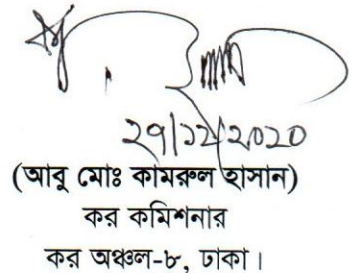 ২৭/১২/২০২০
(আবু মোঃ কামরুল হাসান)
কর কমিশনার
কর অঞ্চল-৮, ঢাকা।